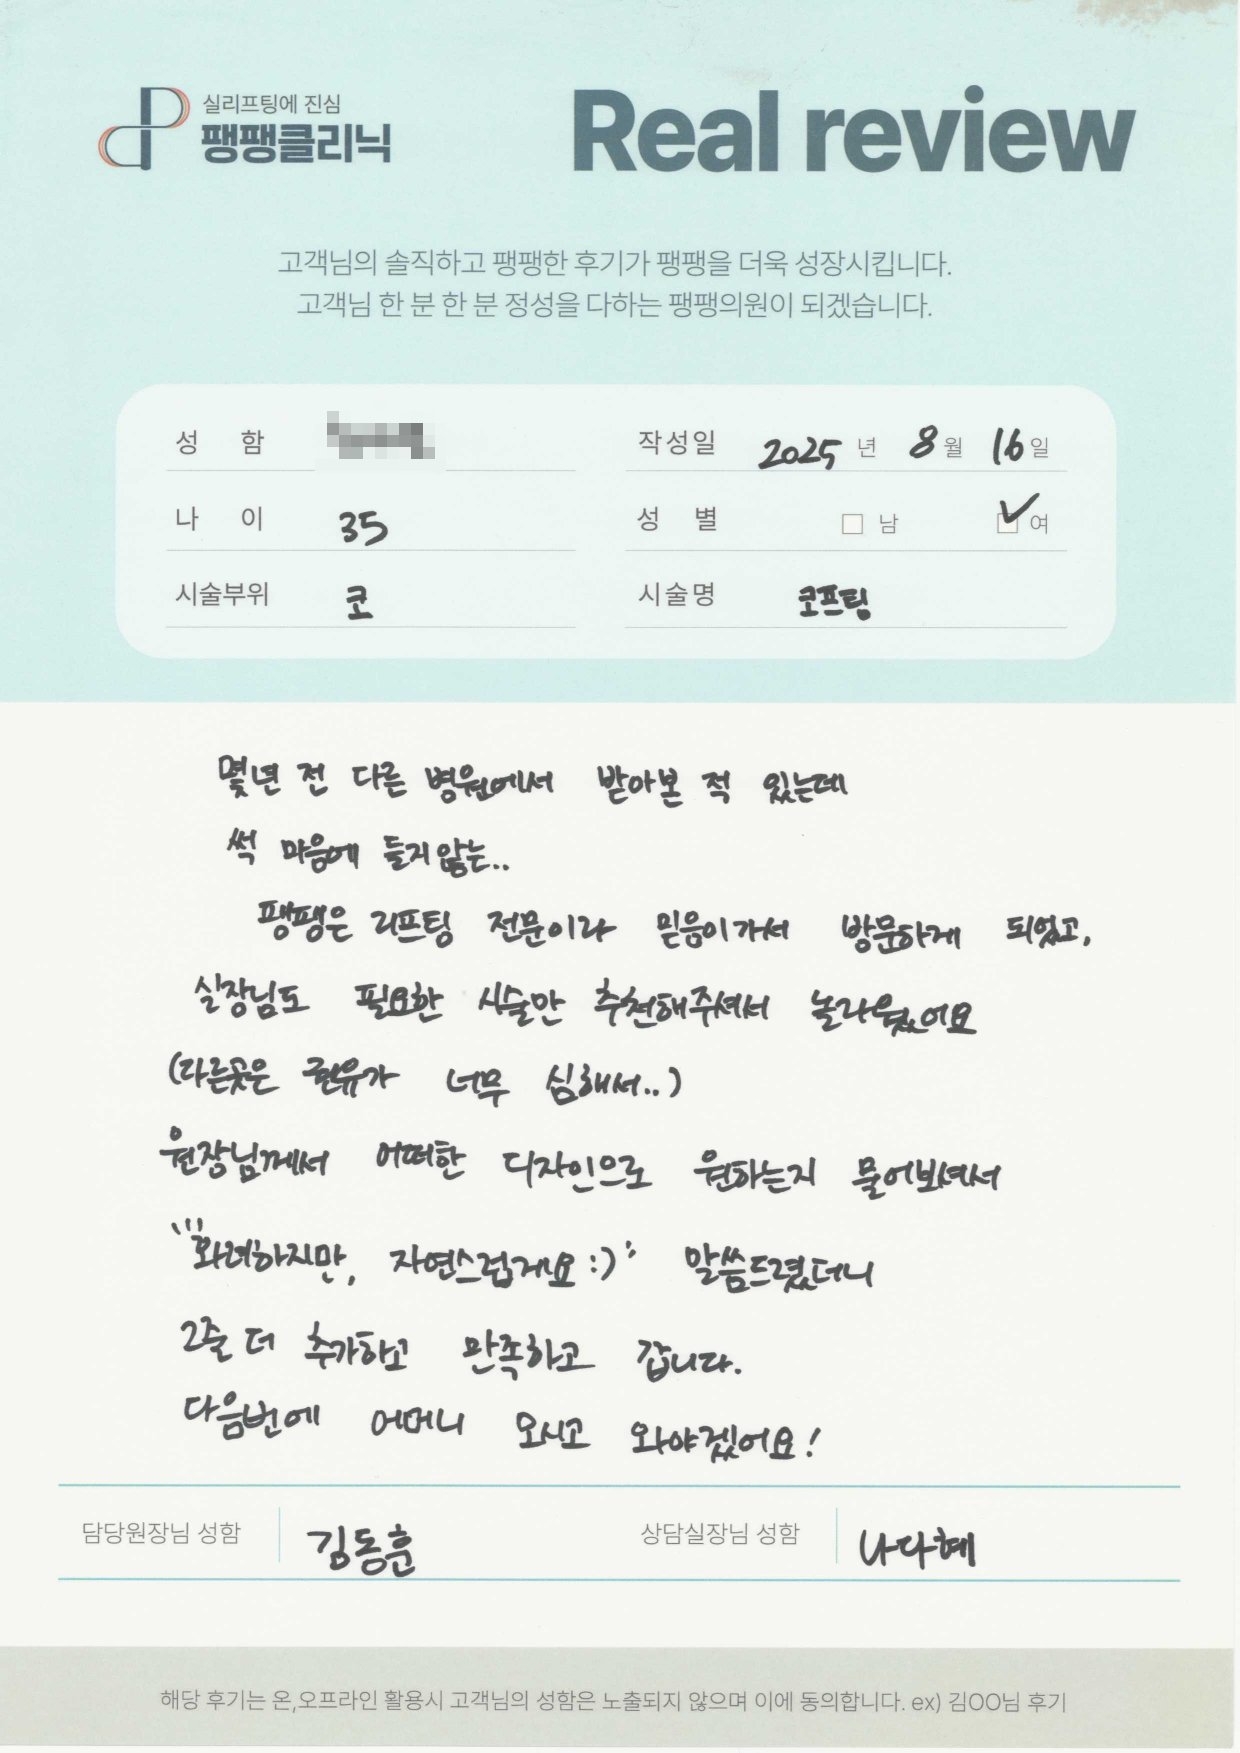 실리프팅에 진심
팽팽클리닉
Real review
고객님의 솔직하고 팽팽한 후기가 팽팽을 더욱 성장시킵니다.
고객님 한 분 한 분 정성을 다하는 팽팽의원이 되겠습니다.
성 함
작성일 2025 년 8 월 16 일
나 이 35
성 별 남 여
시술부위 코
시술명 코프팅
몇년 전 다른 병원에서 받아본 적 있는데
썩 마음에 들지않는..
팽팽은 리프팅 전문이라 믿음이가서 방문하게 되었고,
실장님도 필요한 시술만 추천해주셔서 놀라웠어요
(다른곳은 권유가 너무 심해서..)
원장님께서 어떠한 디자인으로 원하는지 물어보셔서
"화려하지만, 자연스럽게요 :)" 말씀드렸더니
2줄 더 추가하고 만족하고 갑니다.
다음번에 어머니 모시고 와야겠어요!
담당원장님 성함 김동훈
상담실장님 성함 나다혜
해당 후기는 온,오프라인 활용시 고객님의 성함은 노출되지 않으며 이에 동의합니다. ex) 김OO님 후기